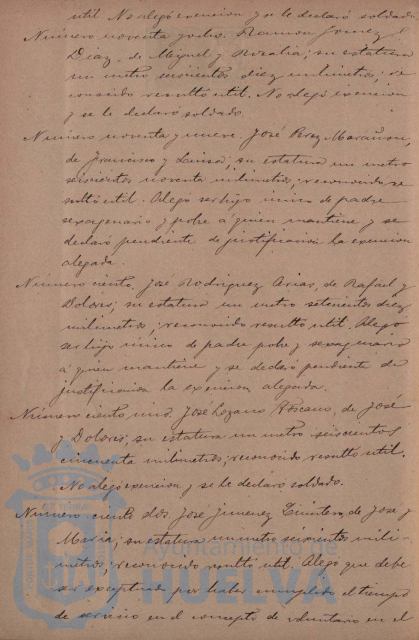 util. No alegó exencion y se le declaró soldado
Número noventa y ocho. Ramon Gomez
Diaz, de Miguel y Rosalia; su estatura
un metro seiscientos diez milimetros; re-
conocido resultó util. No alegó exencion
y se le declaró soldado.
Número noventa y nueve. José Perez Marañon,
de Francisco y Luisa; su estatura un metro
seiscientos noventa milimetros; reconocido re-
sultó util. Alegó ser hijo único de padre
sexagenario y pobre á quien mantiene y se
declaró pendiente de justificacion la exencion
alegada.
Número ciento. José Rodriguez Arias, de Rafael y
Dolores; su estatura un metro setecientos diez
milimetros; reconocido resultó util. Alegó
ser hijo único de padre pobre y sexagenario
á quien mantiene y se declaró pendiente de
justificacion la exencion alegada.
Número ciento uno. José Lozano Toscano, de José
y Dolores; su estatura un metro seiscientos
cincuenta milimetros; reconocido resultó util.
No alegó exencion y se le declaró soldado.
Número ciento dos. José Jimenez Quintero, de José y
Maria; su estatura un metro seiscientos mili-
metros; reconocido resultó util. Alegó que debe
ser exceptuado por haber cumplido el tiempo
de servicio en el concepto de voluntario en el
Ayuntamiento de
HUELVA